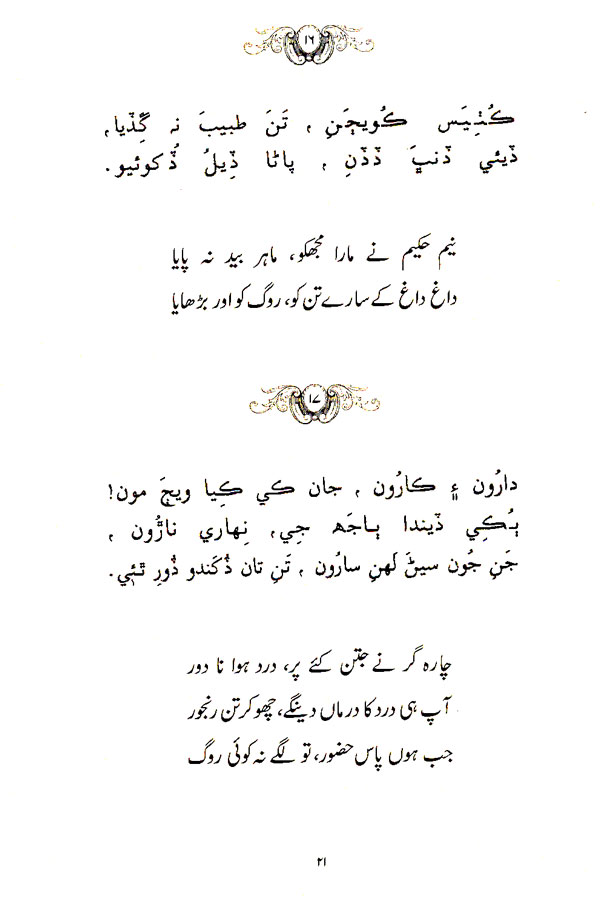 ١٦
ڪُٺِيَس ڪُويڄَنِ ، تَنَ طبيبَ نہ گَڏيا،
ڏيئي ڏنڀَ ڏڏَنِ ، پاڻا ڏِيلُ ڏُکوئيو.
نیم حکیم نے مارا مجھکو، ماہر بید نہ پایا
داغ داغ کے سارے تن کو، روگ کو اور بڑھایا
١٧
دارُون ۽ ڪارُون ، جان ڪي ڪِيا ويڄَ مون!
ٻُڪِي ڏيندا ٻاجَھ جِي، نِهاري ناڙُون ،
جَنِ جُون سيڻَ لهنِ سارُون ، تَنِ تان ڏُکندو ڏُورِ ٿئي.
چارہ گر نے جتن کئے پر، درد ہوا نا دور
آپ ہی درد کا درماں دینگے، چھو کر تن رنجور
جب ہوں پاس حضور، تو لگے نہ کوئی روگ
٢١